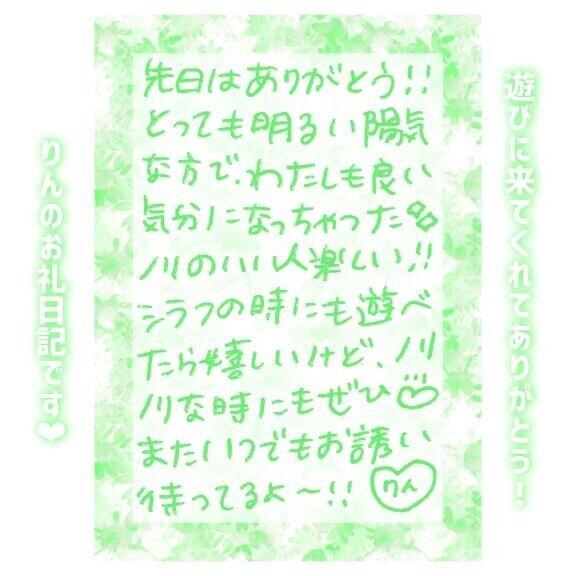 遊びに来てくれてありがとう!
先日はありがとう!!
とっても明るい陽気
な方で、わたしも良い
気分になっちゃった
ノリのいい人楽しい!!
シラフの時にも遊べ
たら嬉しいけど、ノリ
ノリな時にもぜひ
またいつでもお誘い
待ってるよ〜!!
りん
りんのお礼日記です❤